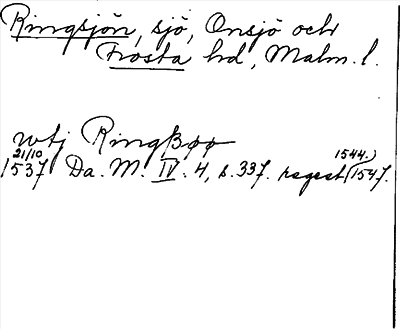 Ringsjön, sjö, Onsjö och
Frosta hd, Malm. l.
utj Ringßøø
21/10 1537 Da. M. IV. 4, s. 337. regest (1544.) 1547.